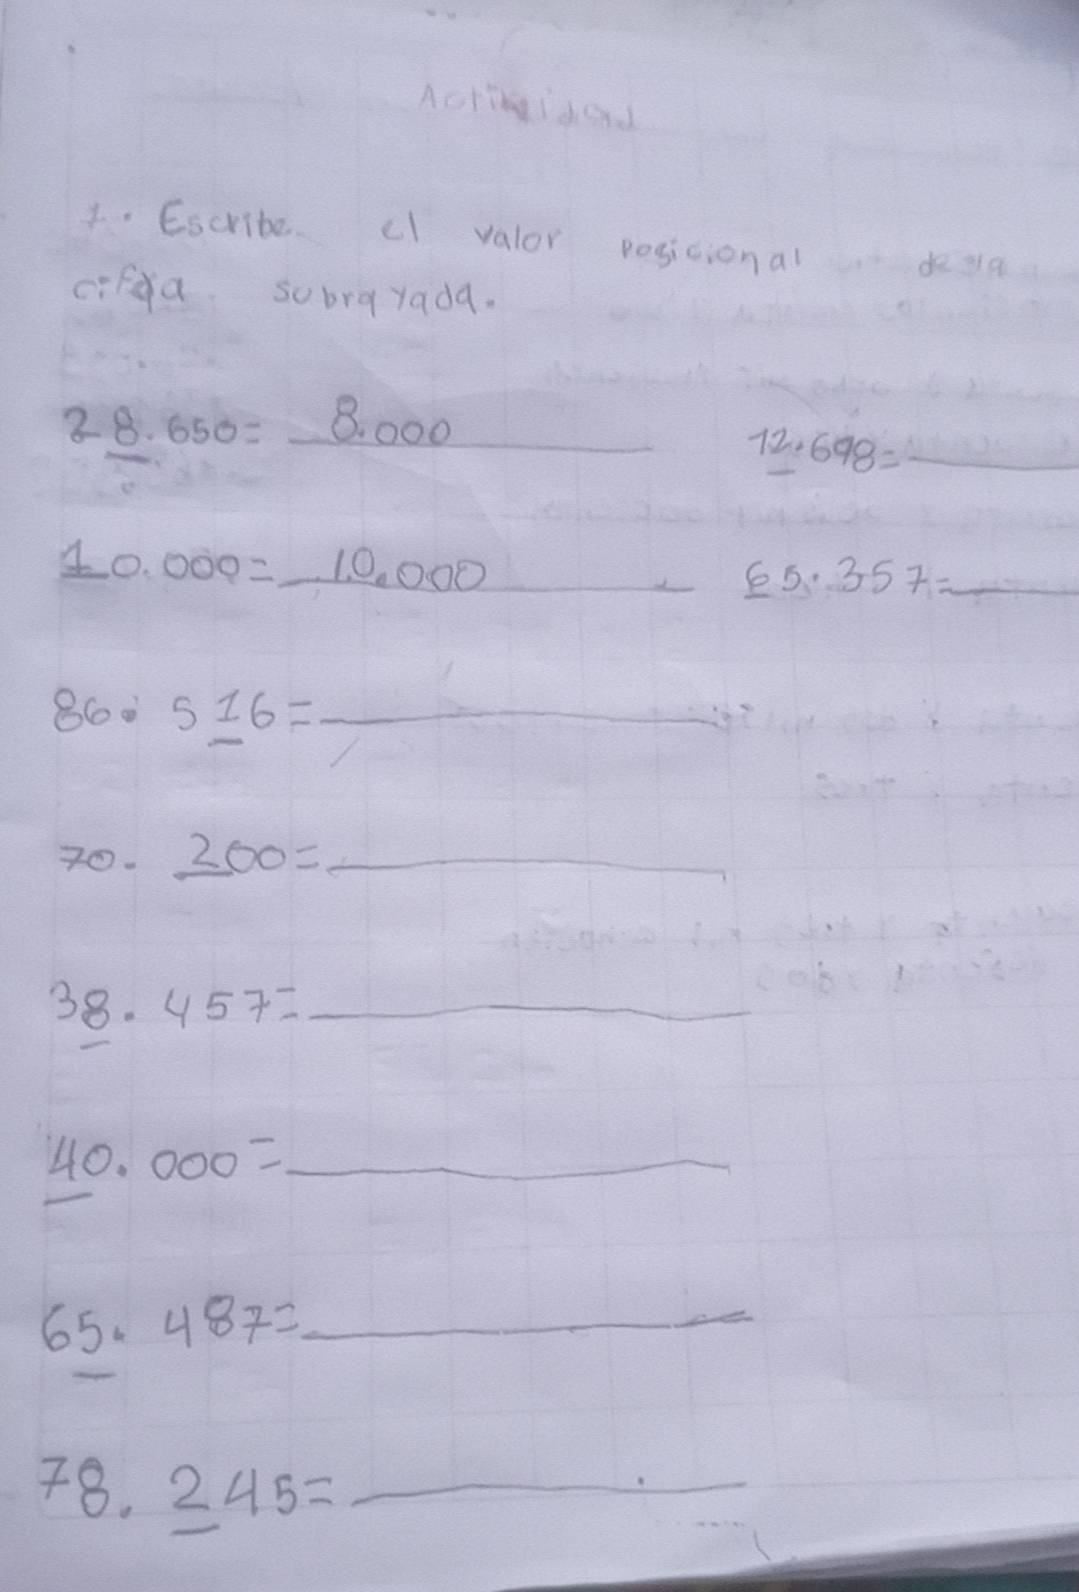 Actividad
1. Escribe el valor posicional de la
cifra subrayada.
28.650= 8.000
12.698=
10.000= 10.000
65.357=
86. 516=
70. 200=
38. 457=
40. 000=
65. 487=
78. 245=